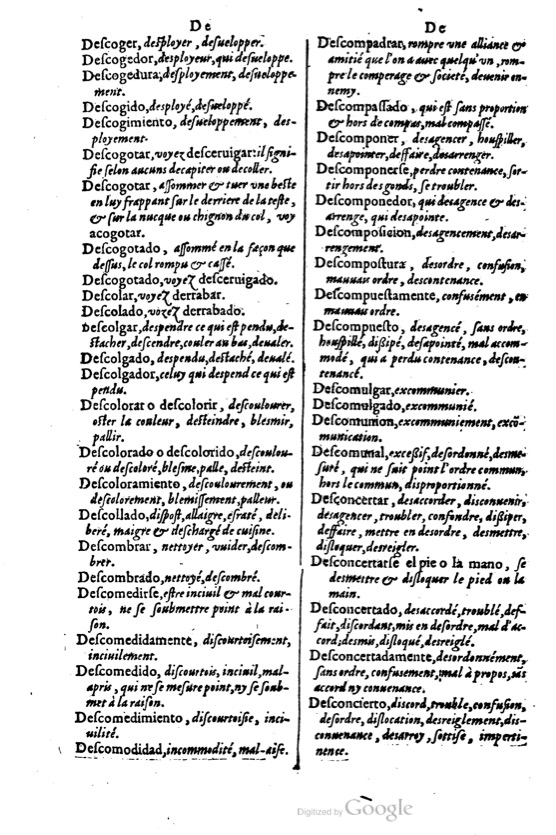 De
Deſcoger, deſployer, deſuelopper.
Deſcogedor, desployeur, qui deſueloppe.
Deſcogedura, desployement, deſueloppe-
ment.
Deſcogido, desployé, deſueloppé.
Deſcogimiento, deſueloppement, des-
ployement.
Deſcogotar, voyez desceruigar: il ſigni-
fie ſelon aucuns decapiter ou decoller.
Deſcogotar, aſſommer & tuer vne beste
en luy frappant ſur le derriere de la teste,
& ſur la nucque ou chignon du col, voy
acogotar.
Deſcogotado, aſſommé en la façon que
deſſus, le col rompu & caſſé.
Deſcogotado, voyez desceruigado.
Deſcolar, voyez derrabar.
Deſcolado, voyez derrabado.
Deſcolgar, despendre ce qui est pendu, de-
ſtacher, deſcendre, couler au bas, deualer.
Deſcolgado, despendu, destaché, deualé.
Deſcolgador, celuy qui despend ce qui est
pendu.
Deſcolorar o deſcolorir, deſcoulourer,
oster la couleur, desteindre, blesmir,
pallir.
Deſcolorado o deſcolorido, deſcoulou-
ré ou deſcoloré, blesme, palle, desteint.
Deſcoloramiento, deſcoulourement, ou
deſcolorement, blemiſſement, palleur.
Deſcollado, diſpost, allaigre, efraté, deli-
beré, maigre & deſchargé de cuiſine.
Deſcombrar, nettoyer, vuider, deſcom-
brer.
Deſcombrado, nettoyé, deſcombré.
Deſcomedirſe, estre inciuil & mal cour-
tois, ne se ſoubmettre point à la rai-
ſon.
Deſcomedidamente, diſcourtoiſement,
inciuilement.
Deſcomedido, diſcourtois, inciuil, mal-
apris, qui ne ſe meſure point, ny ſe ſoub-
met à la raiſon.
Deſcomedimiento, diſcourtoiſie, inci-
uilité.
Deſcomodidad, incommodité, mal-aiſe.
De
Deſcompadrar, rompre vne alliance &
amitié que l'on a auec quelqu'vn, rom-
pre le comperage & ſocieté, deuenir en-
nemy.
Deſcompaſſado, qui est ſans proportion
& hors de compas, mal compaſſé.
Deſcomponer, deſagencer, houſpiller,
deſapointer, deffaire, deſarrenger.
Deſcomponerſe, perdre contenance, ſor-
tir hors des gonds, ſe troubler.
Deſcomponedor, qui deſagence & deſ-
arrenge, qui deſapointe.
Deſcompoſicion, deſagencement, deſar-
rengement.
Deſcompoſtura, deſordre, confuſion,
mauuais ordre, deſcontenance.
Deſcompueſtamente, confuſément, en
mauuais ordre.
Deſcompueſto, deſagencé, ſans ordre,
houſpillé, diſſipé, deſapointé, mal accom-
modé, qui a perdu contenance, deſcon-
tenancé.
Deſcomulgar, excommunier.
Deſcomulgado, excommunié.
Deſcomunion, excommuniement, excõ-
munication.
Deſcomunal, exceſſif, deſordonné, desme-
ſuré, qui ne ſuit point l'ordre commun,
hors le commun, diſproportionné.
Deſconcertar, deſaccorder, diſconuenir,
deſagencer, troubler, confondre, diſſiper,
deffaire, mettre en deſordre, desmettre,
diſloquer, desreigler.
Deſconcertarſe el pie o la mano, ſe
desmettre & diſloquer le pied ou la
main.
Deſconcertado, deſaccordé, troublé, def-
fait, diſcordant, mis en deſordre, mal d'ac-
cord, desmis, diſloqué, desreiglé.
Deſconcertadamente, deſordonnément,
ſans ordre, confuſement, mal à propos, ſãs
accord ny conuenance.
Deſconcierto, diſcord, trouble, confuſion,
deſordre, diſlocation, desreiglement, diſ-
conuenance, deſarroy, ſottiſe, imperti-
nence.
Digitized by Google